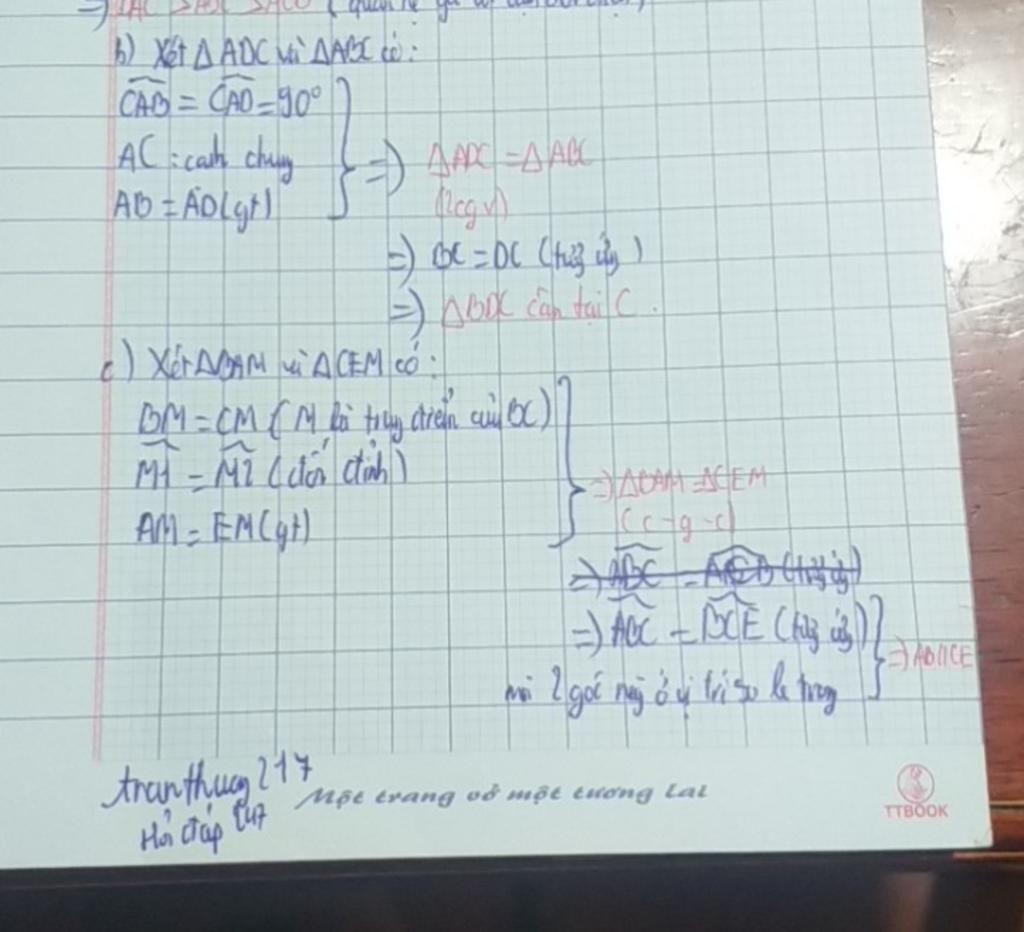 b) Xét ΔADC và ΔABC có:
CAB = CAD = 90°
AC : cạnh chung
AB = AD (gt)
=> ΔADC = ΔABC
(2cgv)
=> BC = DC (tương ứng)
=> ΔBDC cân tại C.
c) Xét ΔBAM và ΔCEM có:
BM = CM (M là trung điểm của BC)
M1 = M2 (đối đỉnh)
AM = EM (gt)
=> ΔBAM = ΔCEM
(c-g-c)
=> ABC = (tương ứng)
=> ABC = BCE (tương ứng)
mà 2 góc này ở vị trí so le trong
=> AB//CE
tranthuong217
Hỏi đáp 247
Một trang vở một tương lai
TTBOOK